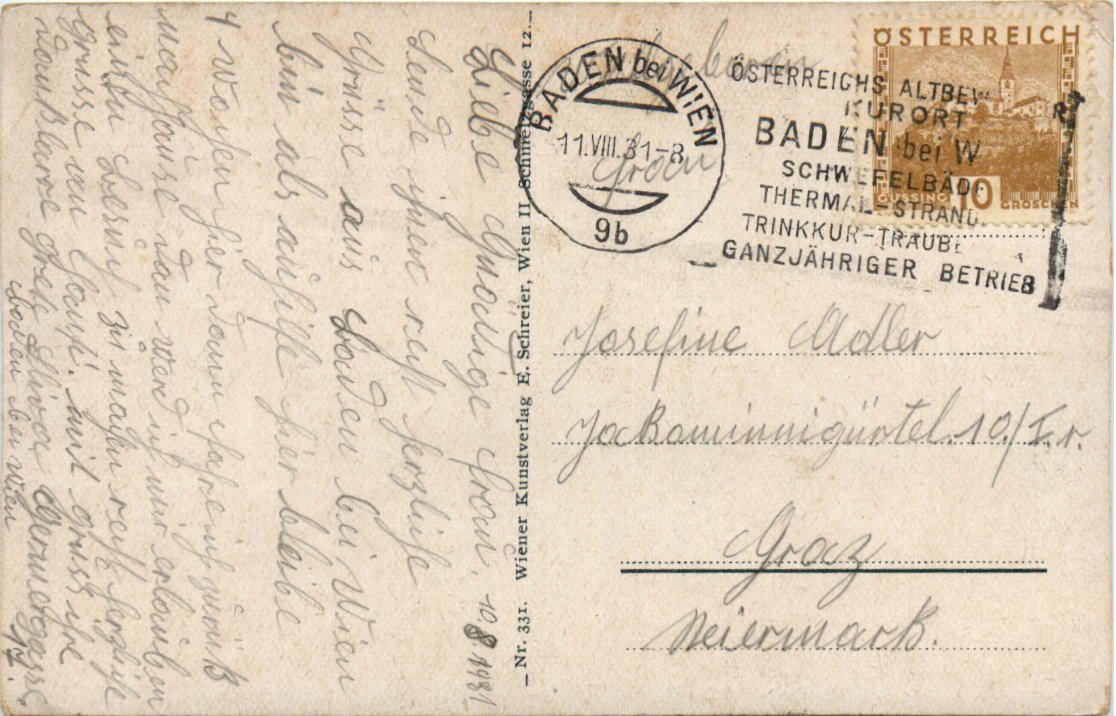 Liebe Gnädige Frau. 10 8 1931
Sende ihnen recht herzliche
Grüsse aus Baden bei Wien
bin als aushilfe hier bleibe
4 Wochen hier dann fahre ich zurück
nach Hause dan werd ich mir erlauben
einen Besuch zu machen recht herzliche
Grüsse an Hause. mit gruss ihre
dankbare Grete
Germergasse
Baden bei Wien
Nr. 331. Wiener Kunstverlag E. Schreier, Wien II, Schmelzgasse 12.
BADEN bei WIEN
11.VIII.31-8
9b
ÖSTERREICHS ALTBEW
KURORT
BADEN bei W
SCHWEFELBÄD
THERMAL-STRAND
TRINKKUR-TRAUBE
GANZJÄHRIGER BETRIEB
ÖSTERREICH
GÜSSING 10 GROSCHEN
Frau
Josefine Adler
Jakominnigürtel 10/I. r.
Graz
Steiermark.